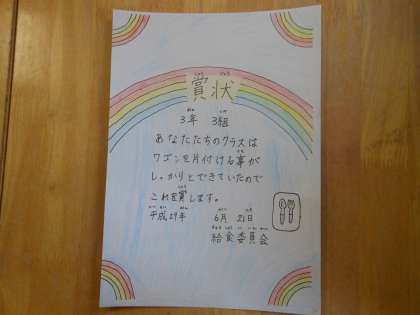 賞状
3年 3組
あなたたちのクラスは
ワゴンを片付ける事が
しっかりとできていたので
これを賞します。
平成29年 6月 21日
給食委員会